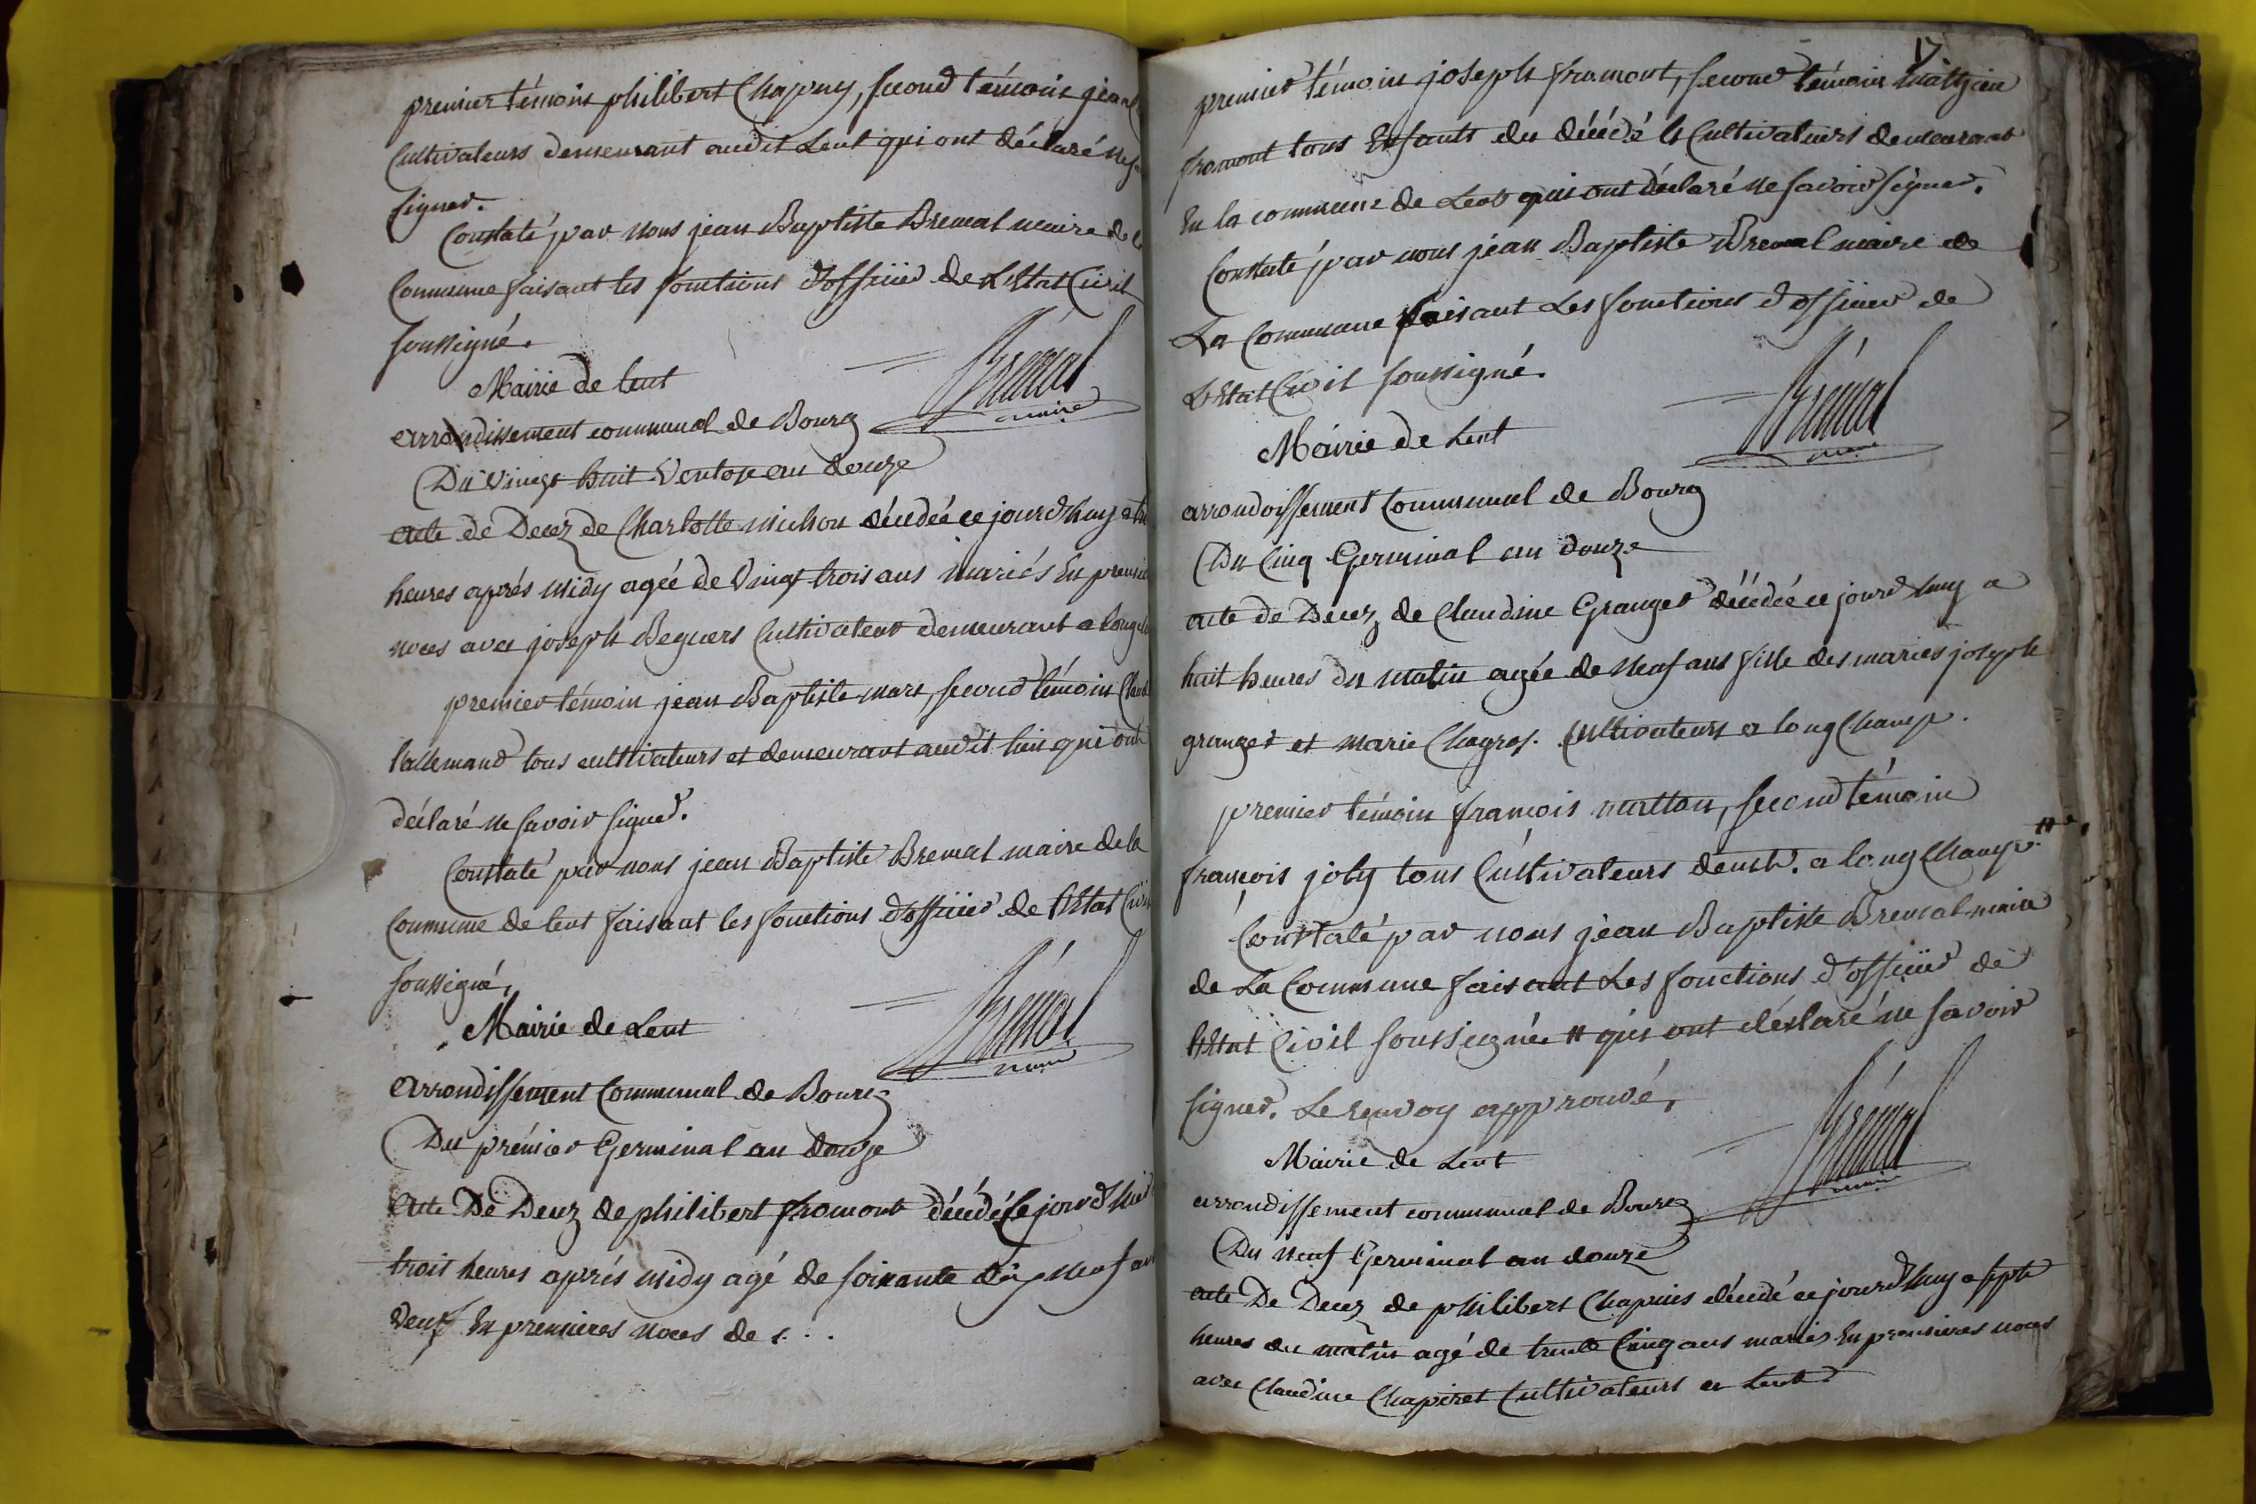 premier témoin philibert Chapuy, second témoin jean
Cultivateurs demeurant audit Lent qui ont déclaré ne
signer.
Constaté par nous jean Baptiste Bremal maire de
Commune faisant les fonctions d'officier de L'Etat Civil
soussigné.
Brémal
maire
Mairie de lent
arrondissement communal de Bourg
Du vingt huit Ventose an douze
acte de Decez de Charlotte michon décédée ce jourd'huy a
heures aprés midy agée de vingt trois ans mariés En
noces avec joseph Beguers Cultivateur demeurant a
premier témoin jean Baptiste mars, second témoin
lallemand tous cultivateurs et demeurant audit lieu qui ont
déclaré ne savoir signer.
Constaté par nous jean Baptiste Bremal maire de la
Commune de lent faisant les fonctions d'officier de l'Etat Civil
soussigné,
Brémal
maire
Mairie de Lent
arrondissement Communal de Bourg
Du prémier Germinal an douze
acte De Decez de philibert fromont décédé Ce jourd'hui
trois heures aprés midy agé de soixante dix neuf ans
veuf En premieres noces de . . .
17
premier témoin joseph fromont, second témoin
fromont tous Enfants du décédé Cultivateurs demeurant
En la commune de Lent qui ont déclaré ne savoir signer.
Constaté par nous jean Baptiste Bremal maire de
La Commune faisant Les fonctions d'officier de
L'Etat Civil soussigné.
Brémal
maire
Mairie de Lent
arrondissement Communal de Bourg
Du Cinq Germinal an douze
acte de Decez de Claudine Granger décédée ce jourd'huy a
huit heures du matin agée de neuf ans fille des mariés joseph
granger et marie Chagros. Cultivateurs a longChamp.
premier témoin françois matton, second témoin
françois joly tous Cultivateurs demt. a longChamp. #
Constaté par nous jean Baptiste Bremal maire
de La Commune faisant Les fonctions d'officier de
l'Etat Civil soussigné. # qui ont déclaré ne savoir
signer. Le renvoy approuvé,
Brémal
maire
Mairie de Lent
arrondissement communal de Bourg
Du neuf Germinal an douze
acte De Decez de philibert Chapuis décédé ce jourd'huy a sept
heures du matin agé de trente Cinq ans mariés En premieres noces
avec Claudine Chapiret Cultivateurs a Lent